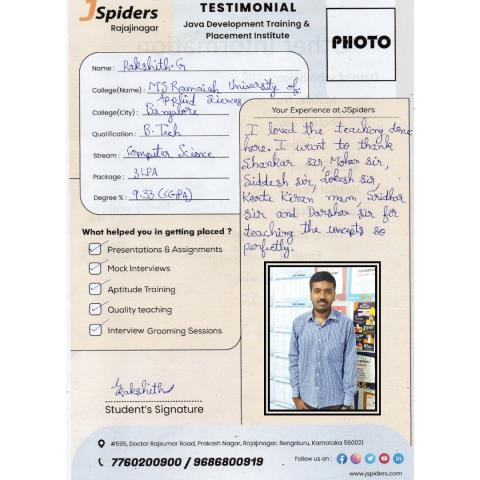 JSpiders
Rajajinagar
TESTIMONIAL
Java Development Training &
Placement Institute
PHOTO
Name : Rakshith-G
College(Name) : M S Ramaiah University of
Applied Sciences
College(City) : Bangalore
Qualification : B. Tech
Stream : Computer Science
Package : 3 LPA
Degree % : 9.33 (CGPA)
What helped you in getting placed ?
Presentations & Assignments
Mock Interviews
Aptitude Training
Quality teaching
Interview Grooming Sessions
Your Experience at JSpiders
I loved the teaching done
here. I want to thank
Shankar sir, Mohan sir,
Siddesh sir, Lokesh sir
Kiran mam, Sridhar
sir and Darshan sir for
teaching the concepts so
perfectly.
Rakshith
Student's Signature
#595, Doctor Rajkumar Road, Prakash Nagar, Rajajinagar, Bengaluru, Karnataka 560021
7760200900 / 9686800919
Follow us on :
www.jspiders.com